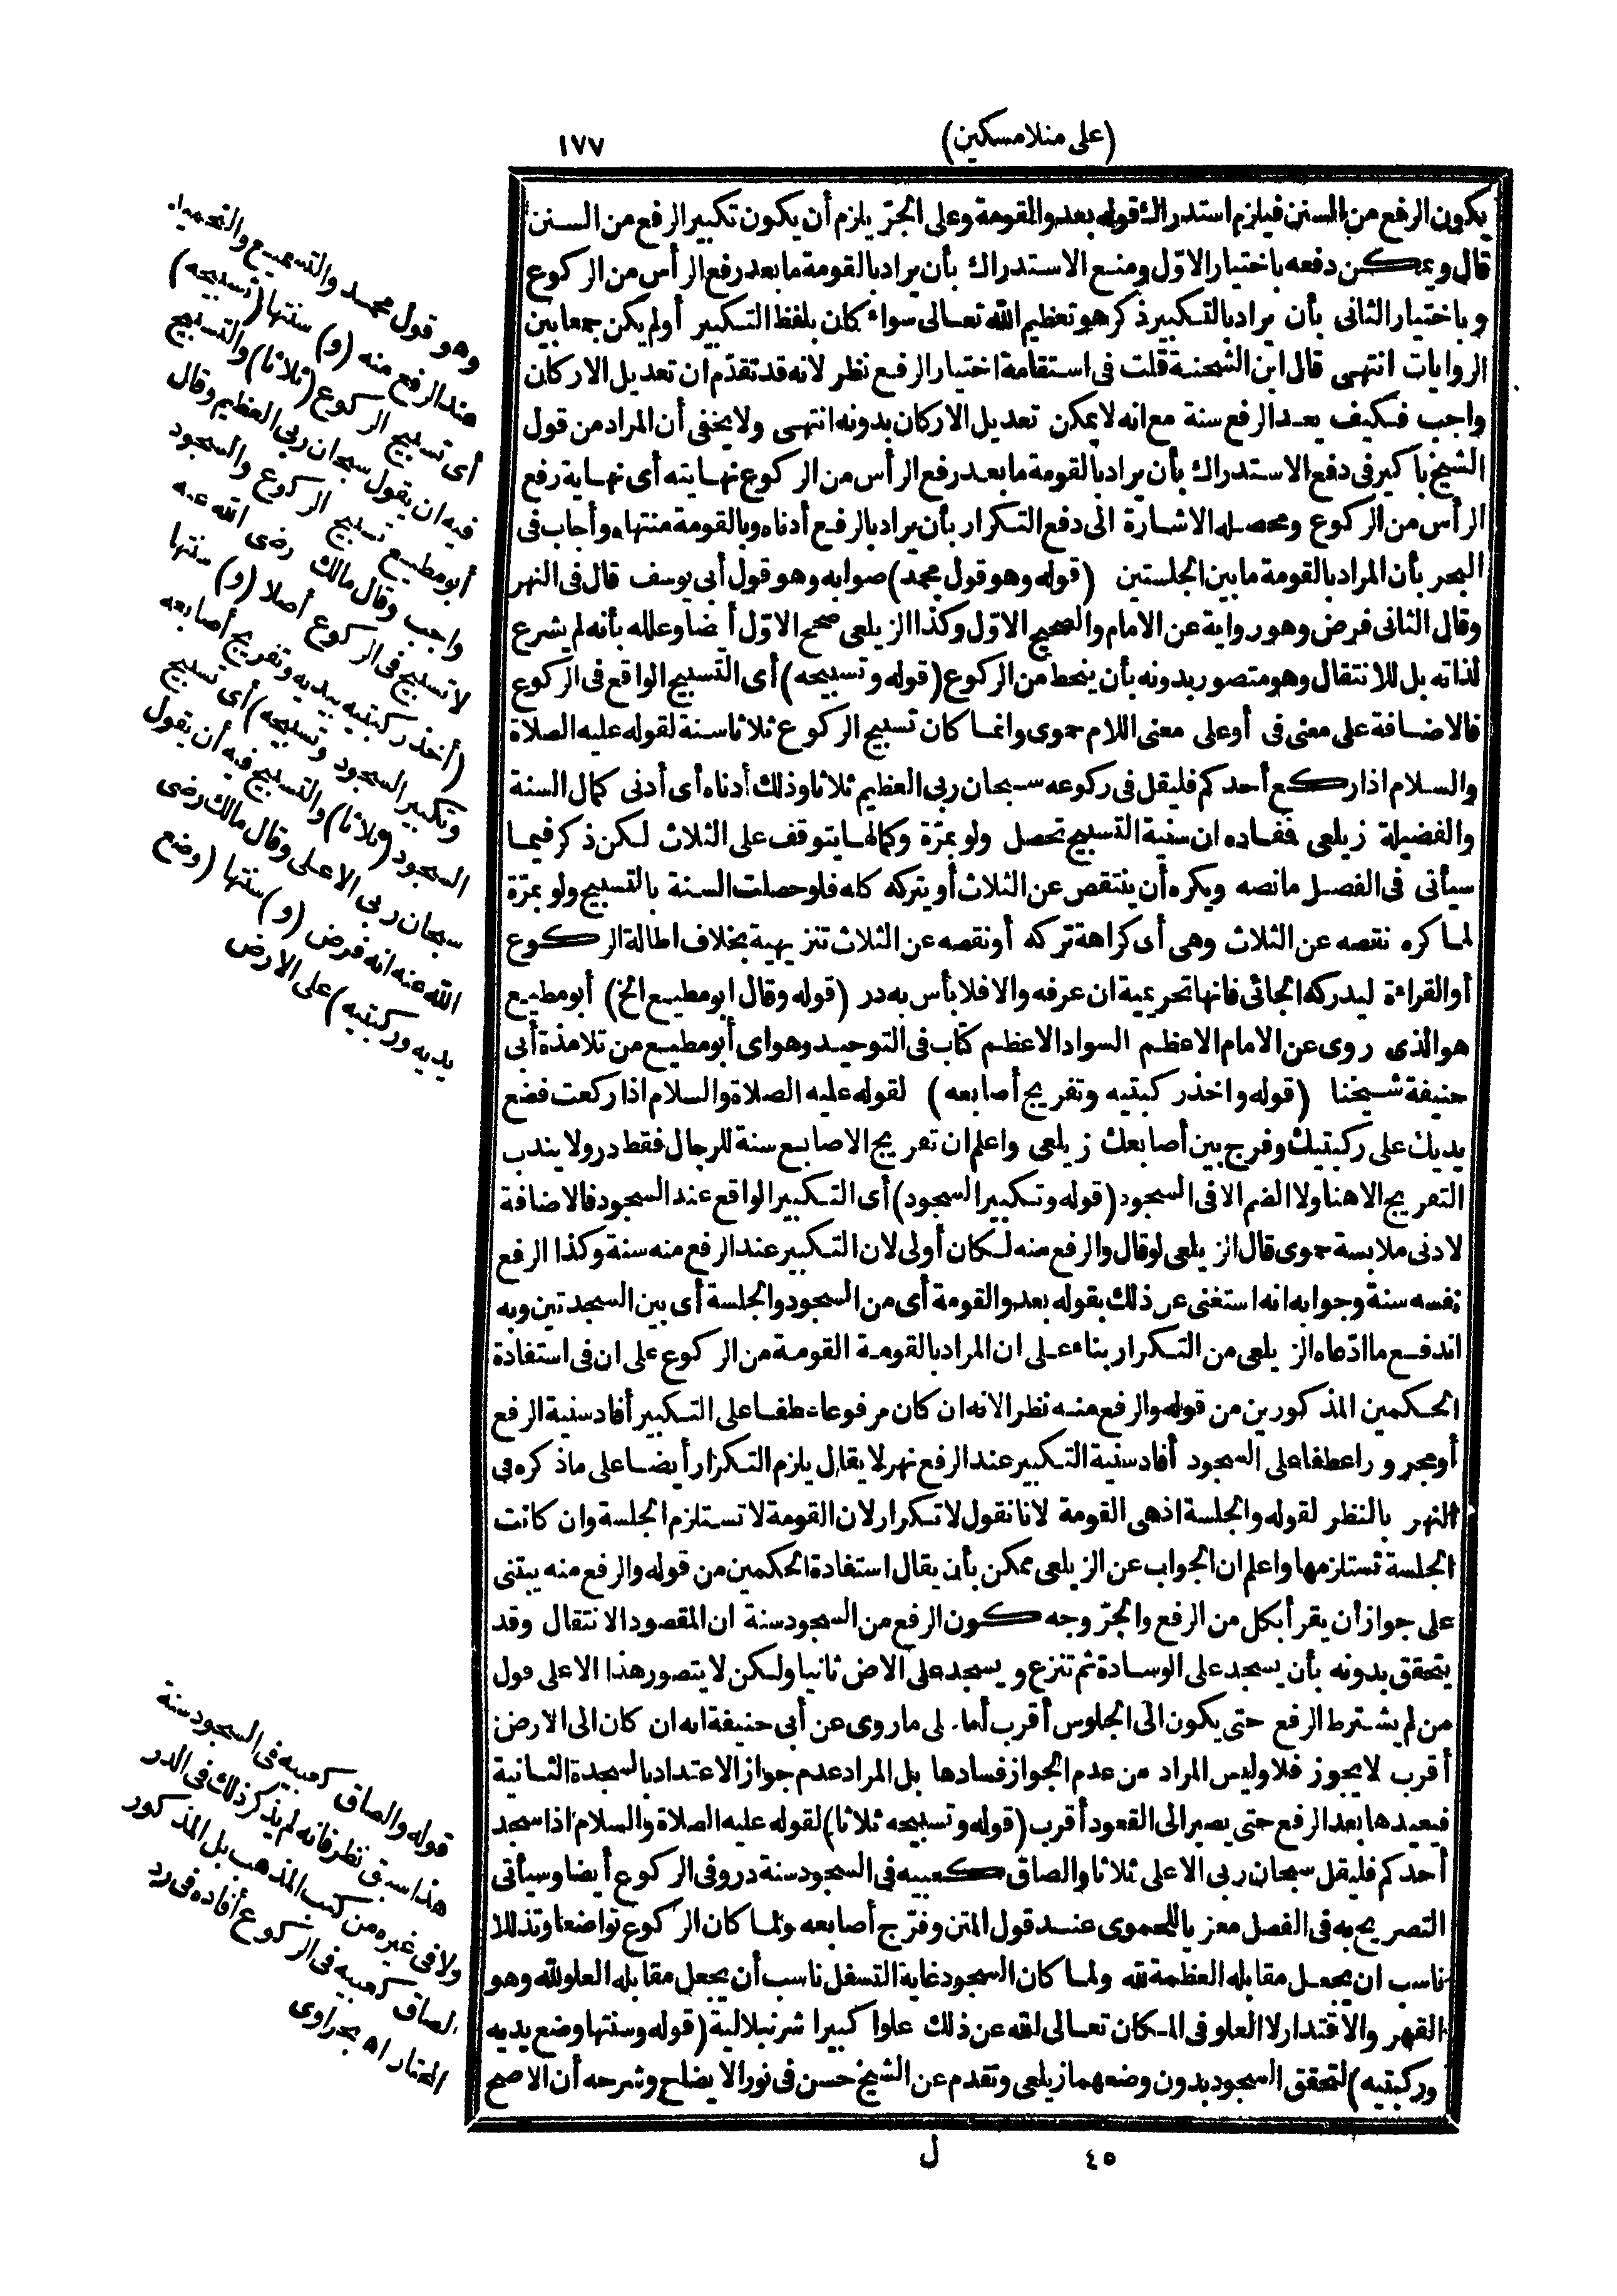 (على منلا مسكين) ١٧٧
يكون الرفع من السنن فيلزم استدراك قوله بعد والقومة وعلى الجرّ يلزم أن يكون تكبير الرفع من السنن
قال ويمكن دفعه باختيار الاوّل ومنع الاستدراك بأن يراد بالقومة ما بعد رفع الرأس من الركوع
وباختيار الثانى بأن يراد بالتكبير ذكر هو تعظيم الله تعالى سواء كان بلفظ التكبير أولم يكن جمعا بين
الروايات انتهى قال ابن الشحنة قلت فى استقامة اختيار الرفع نظر لانه قد تقدّم ان تعديل الاركان
واجب فكيف يعد الرفع سنة مع انه لا يمكن تعديل الاركان بدونه انتهى ولا يخفى أن المراد من قول
الشيخ باكير فى دفع الاستدراك بأن يراد بالقومة ما بعد رفع الرأس من الركوع نهايته أى نهاية رفع
الرأس من الركوع ومحصله الاشارة الى دفع التكرار بأن يراد بالرفع أدناه وبالقومة منتهاه وأجاب فى
البحر بأن المراد بالقومة ما بين الجلستين (قوله وهو قول محمد) صوابه وهو قول أبى يوسف قال فى النهر
وقال الثانى فرض وهو رواية عن الامام والصحيح الاوّل وكذا الزيلعى صحح الاوّل أيضا وعلله بأنه لم يشرع
لذاته بل للانتقال وهو متصور بدونه بأن ينحط من الركوع (قوله وتسبيحه) أى التسبيح الواقع فى الركوع
فالاضافة على معنى فى أو على معنى اللام حموى وانما كان تسبيح الركوع ثلاثا سنة لقوله عليه الصلاة
والسلام اذا ركع أحدكم فليقل فى ركوعه سبحان ربى العظيم ثلاثا وذلك أدناه أى أدنى كمال السنة
والفضيلة زيلعى ففاده ان سنية التسبيح تحصل ولو بمرّة وكمالها يتوقف على الثلاث لكن ذكر فيما
سيأتى فى الفصل مانصه ويكره أن ينتقص عن الثلاث أو يتركه كله فلو حصلت السنة بالتسبيح ولو بمرّة
لما كره نقصه عن الثلاث وهى أى كراهة تركه أو نقصه عن الثلاث تنزيهية بخلاف اطالة الركوع
أو القراءة ليدركه الجائى فانها تحريمية ان عرفه والا فلا بأس به در (قوله وقال ابو مطيع الخ) أبو مطيع
هو الذى روى عن الامام الاعظم السواد الاعظم كتاب فى التوحيد وهو اى أبو مطيع من تلامذة أبى
حنيفة شيخنا (قوله واخذ ركبتيه وتفريج أصابعه) لقوله عليه الصلاة والسلام اذا ركعت فضع
يديك على ركبتيك وفرج بين أصابعك زيلعى واعلم ان تفريج الاصابع سنة للرجال فقط در ولا يندب
التفريج الا هنا ولا الضم الا فى السجود (قوله وتكبير السجود) أى التكبير الواقع عند السجود فالاضافة
لادنى ملابسة حموى قال الزيلعى لو قال والرفع منه لكان أولى لان التكبير عند الرفع منه سنة وكذا الرفع
نفسه سنة وجوابه انه استغنى عن ذلك بقوله بعد والقومة أى من السجود والجلسة أى بين السجدتين وبه
اندفع ما ادّعاه الزيلعى من التكرار بناء على ان المراد بالقومة القومة من الركوع على ان فى استفادة
الحكمين المذكورين من قوله والرفع منه نظرا لانه ان كان مرفوعا عطفا على التكبير أفاد سنية الرفع
أو مجرورا عطفا على السجود أفاد سنية التكبير عند الرفع نهر لا يقال يلزم التكرار أيضا على ما ذكره فى
النهر بالنظر لقوله والجلسة اذ هى القومة لانا نقول لا تكرار لان القومة لا تستلزم الجلسة وان كانت
الجلسة تستلزمها واعلم ان الجواب عن الزيلعى ممكن بأن يقال استفادة الحكمين من قوله والرفع منه يبتنى
على جواز أن يقرأ بكل من الرفع والجرّ وجه كون الرفع من السجود سنة ان المقصود الانتقال وقد
يتحقق بدونه بأن يسجد على الوسادة ثم تنزع ويسجد على الارض ثانيا ولكن لا يتصور هذا الا على قول
من لم يشترط الرفع حتى يكون الى الجلوس أقرب أما على ما روى عن أبى حنيفة انه ان كان الى الارض
أقرب لا يجوز فلا وليس المراد من عدم الجواز فسادها بل المراد عدم جواز الاعتداد بالسجدة الثانية
فيعيدها بعد الرفع حتى يصير الى القعود أقرب (قوله وتسبيحه ثلاثا) لقوله عليه الصلاة والسلام اذا سجد
أحدكم فليقل سبحان ربى الاعلى ثلاثا والصاق كعبيه فى السجود سنة در وفى الركوع أيضا وسيأتى
التصريح به فى الفصل معزيا للحموى عند قول المتن وفرّج أصابعه ولما كان الركوع تواضعا وتذللا
ناسب ان يجعل مقابله العظمة لله ولما كان السجود غاية التسفل ناسب أن يجعل مقابله العلو لله وهو
القهر والاقتدار لا العلو فى المكان تعالى الله عن ذلك علوا كبيرا شرنبلالية (قوله وسنتها وضع يديه
وركبتيه) لتحقق السجود بدون وضعهما زيلعى وتقدم عن الشيخ حسن فى نور الايضاح وشرحه أن الاصح
وهو قول محمد والتسميع والتحميد
عند الرفع منه (و) سنتها (تسبيحه)
أى تسبيح الركوع (ثلاثا) والتسبيح
فيه ان يقول سبحان ربى العظيم وقال
أبو مطيع تسبيح الركوع والسجود
واجب وقال مالك رضى الله عنه
لا تسبيح فى الركوع أصلا (و) سنتها
(أخذ ركبتيه بيديه وتفريج أصابعه
وتكبير السجود وتسبيحه) أى تسبيح
السجود (ثلاثا) والتسبيح فيه أن يقول
سبحان ربى الاعلى وقال مالك رضى
الله عنه انه فرض (و) سنتها (وضع
يديه وركبتيه) على الارض
قوله والصاق كعبيه فى السجود سنة
هذا سبق نظر فانه لم يذكر ذلك فى الدر
ولا فى غيره من كتب المذهب بل المذكور
الصاق كعبيه فى الركوع أفاده فى رد
المحتار اه بحراوى
٤٥ ل